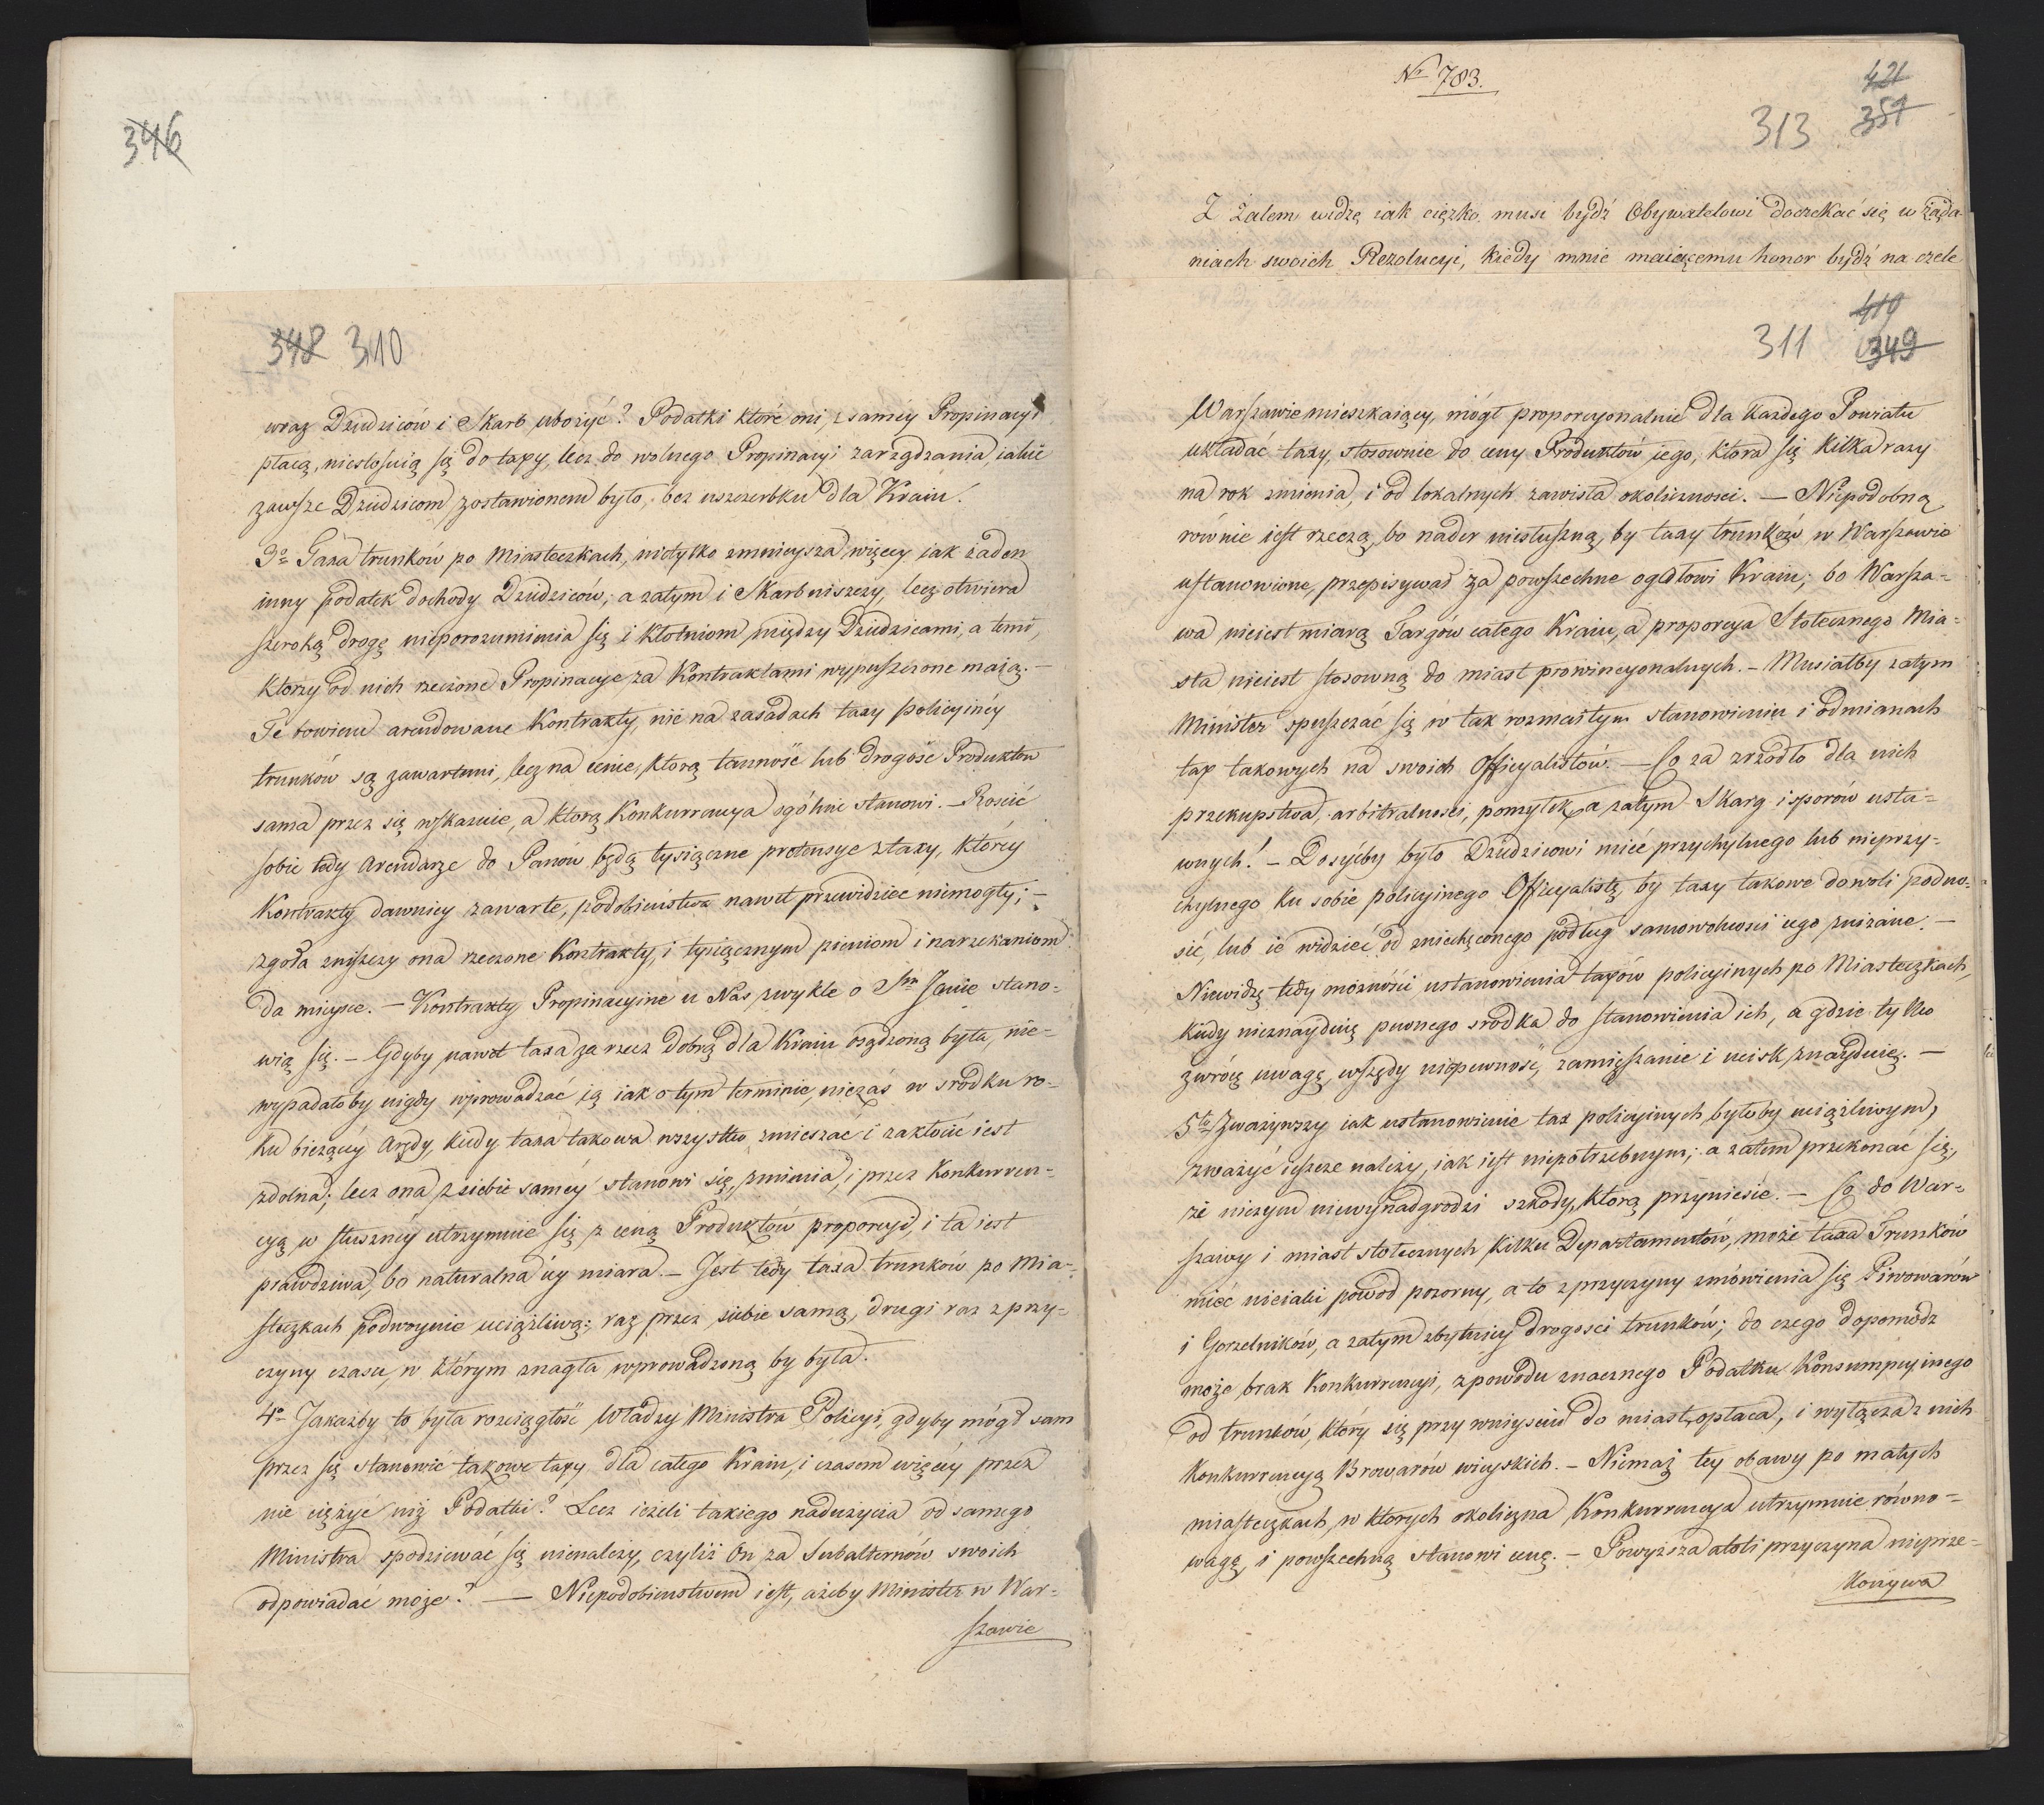 346
348 310
wraz Dziedziców i Skarb ubożyć? Podatki które oni, z saméy Propinacyi
płacą, niestosuią się do taxy, lecz do wolnego Propinacyi zarządzania, iakie
zawsze Dziedzicom zostawionem było, bez uszczerbku dla Kraiu.
3o Taxa trunków po Miasteczkach, nietylko zmnieysza więcey jak żaden
inny podatek dochody Dziedziców, a zatym i Skarb niszczy, lecz otwiera
szeroką drogę nieporozumienia się i kłótniom między Dziedzicami, a temi,
którzy od nich rzeczone Propinacye za Kontraktami wypuszczone maią. —
Te bowiem arendowane Kontrakty, nie na zasadach taxy policyinéy
trunków są zawartemi, lecz na cenie, którą tanność lub drogość Produktów
sama przez się wskazuie, a którą Konkurrencya ogólnie stanowi. — Rościć
sobie tedy Arendarze do Panów będą tysiączne pretensye z taxy, któréy
Kontrakty dawniey zawarte, podobieństwa nawet przewidzieć niemogły; —
zgoła zniszczy ona rzeczone Kontrakty, i tysiącznym pieniom i narzekaniom
da mieysce. — Kontrakty Propinacyine u Nas zwykle o Stm Janie stano-
wią się. — Gdyby nawet taxa za rzecz dobrą dla Kraiu osądzoną była, nie-
wypadałoby nigdy wprowadzać ią iak o tym terminie, niezaś w srodku ro-
ku bieżącéy Arędy, kiedy taxa takowa wszystko zmieszać i zakłócić iest
zdolna; lecz ona z siebie saméy stanowi się, zmienia, i przez Konkurren-
cyą w słuszney utrzymuie się z ceną Produktów proporcyi, i ta iest
prawdziwa, bo naturalna iey miara. — Jest tedy taxa trunków po Mia-
steczkach podwoynie uciążliwą; raz przez siebie samą, drugi raz z przy-
czyny czasu, w którym znagła wprowadzoną by była.
4o Jakażby to była rozciągłość Władzy Ministra Policyi, gdyby mógł sam
przez się stanowić takowe taxy dla całego Kraiu, i czasem więcéy przez
nie ciężyć niż Podatki? Lecz ieżeli takiego nadużycia od samego
Ministra spodziewać się nienależy, czyliż On za Subalternów swoich
odpowiadać może? — Niepodobieństwem iest, ażeby Minister w War-
szawie
No 783.
421
313 351
Z żalem widzę iak ciężko musi bydź Obywatelowi doczekać się w żąda-
niach swoich Rezolucyi, kiedy mnie maiącemu honor bydź na czele
419
311 349
Warszawie mieszkaiący, mógł proporcyonalnie dla każdego Powiatu
układać taxy, stosownie do ceny Produktów iego, która się kilka razy
na rok zmienia, i od lokalnych zawisła okoliczności. — Niepodobną
równie iest rzeczą, bo nader niesłuszną, by taxy trunków w Warszawie
ustanowione, przepisywać za powszechne ogółowi Kraiu; bo Warsza-
wa nieiest miarą Targów całego Kraiu, a proporcya Stołecznego Mia-
sta nieiest stosowną do miast prowincyonalnych. — Musiałby zatym
Minister spuszczać się w tak rozmaitym stanowieniu i odmianach
tax takowych na swoich Officyalistów. — Co za zrzódło dla nich
przekupstwa, arbitralności, pomyłek, a zatym Skarg i sporów usta-
wnych! — Dosyćby było Dziedzicowi mieć przychylnego lub nieprzy-
chylnego ku sobie policyinego Officyalistę, by taxy takowe dowoli podno-
sić, lub ie widzieć od zniechęconego podług samowolności iego zniżane. —
Niewidzę tedy możności ustanowienia taxów policyinych po Miasteczkach,
kiedy nieznayduię pewnego srodka do stanowienia ich, a gdzie tylko
zwrócę uwagę, wszędy niepewność, zamięszanie i ucisk znayduię. —
5to Zważywszy iak ustanowienie tax policyinych byłoby uciążliwym,
zważyć ieszcze należy, iak iest niepotrzebnym; a zatem przekonać się,
że niczym niewynadgrodzi szkody, którą przyniesie. — Co do War-
szawy i miast stołecznych kilku Departamentów, może taxa Trunków
mieć nieiaki powód pozorny, a to z przyczyny zmówienia się Piwowarów
i Gorzelników, a zatym zbytniey drogości trunków; do czego dopomódz
może brak Konkurrencyi, z powodu znacznego Podatku Konsumpcyinego
od trunków, który się przy wniyściu do miast opłaca, i wyłącza z nich
Konkurrencyą Browarów wieyskich. — Niemasz tey obawy po małych
miasteczkach, w których okoliczna Konkurrencya utrzymuie równo-
wagę, i powszechną stanowi cenę. — Powyższa atoli przyczyna nieprze-
konywa